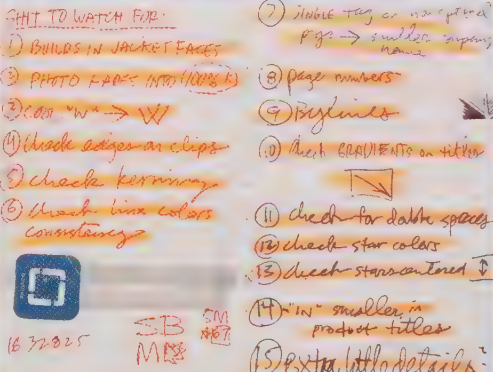 SHIT TO WATCH FOR:
1) BUILDS IN JACKET FACES
2) PHOTO FADES INTO (100% K)
3) "W" → W
4) Check edges on clips
5) check kerning
6) check line colors
consistency
16 32825
SB
SM
7) SINGLE Tag
pgs → smaller company
name
8) page numbers
9) Bylines
10) check GRADIENTS on titles
11) check for double spaces
12) check star colors
13) check stars centered
14) "IN" smaller in
product titles
15) Extra little details